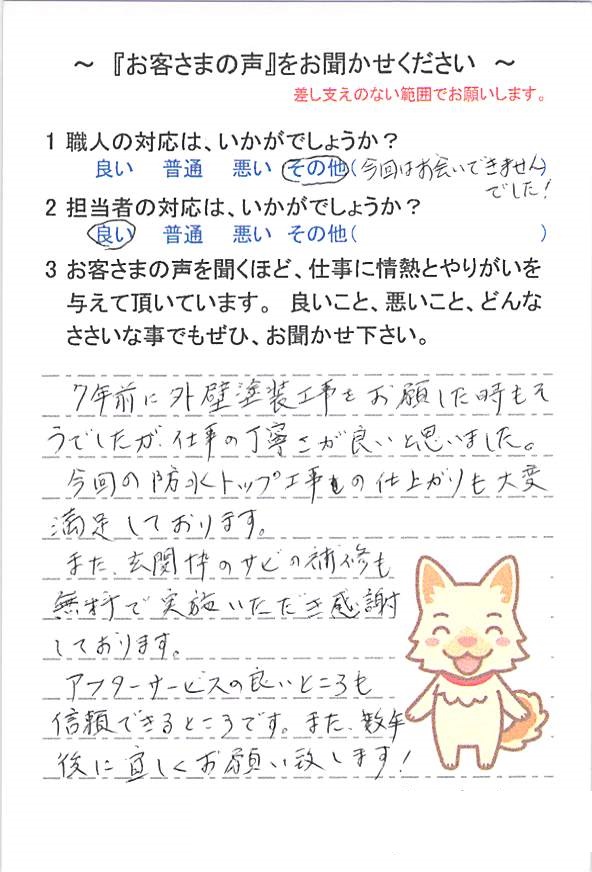 ～ 『お客さまの声』をお聞かせください ～
差し支えのない範囲でお願いします。
1 職人の対応は、いかがでしょうか？
良い 普通 悪い その他(今回はお会いできません)
でした！
2 担当者の対応は、いかがでしょうか？
良い 普通 悪い その他( )
3 お客さまの声を聞くほど、仕事に情熱とやりがいを
与えて頂いています。 良いこと、悪いこと、どんな
ささいな事でもぜひ、お聞かせ下さい。
7年前に外壁塗装工事をお願した時もそ
うでしたが、仕事の丁寧さが良いと思いました。
今回の防水トップ工事の仕上がりも大変
満足しております。
また、玄関枠のサビの補修も
無料で実施いただき感謝
しております。
アフターサービスの良いところも
信頼できるところです。また、数年
後に宜しくお願い致します！